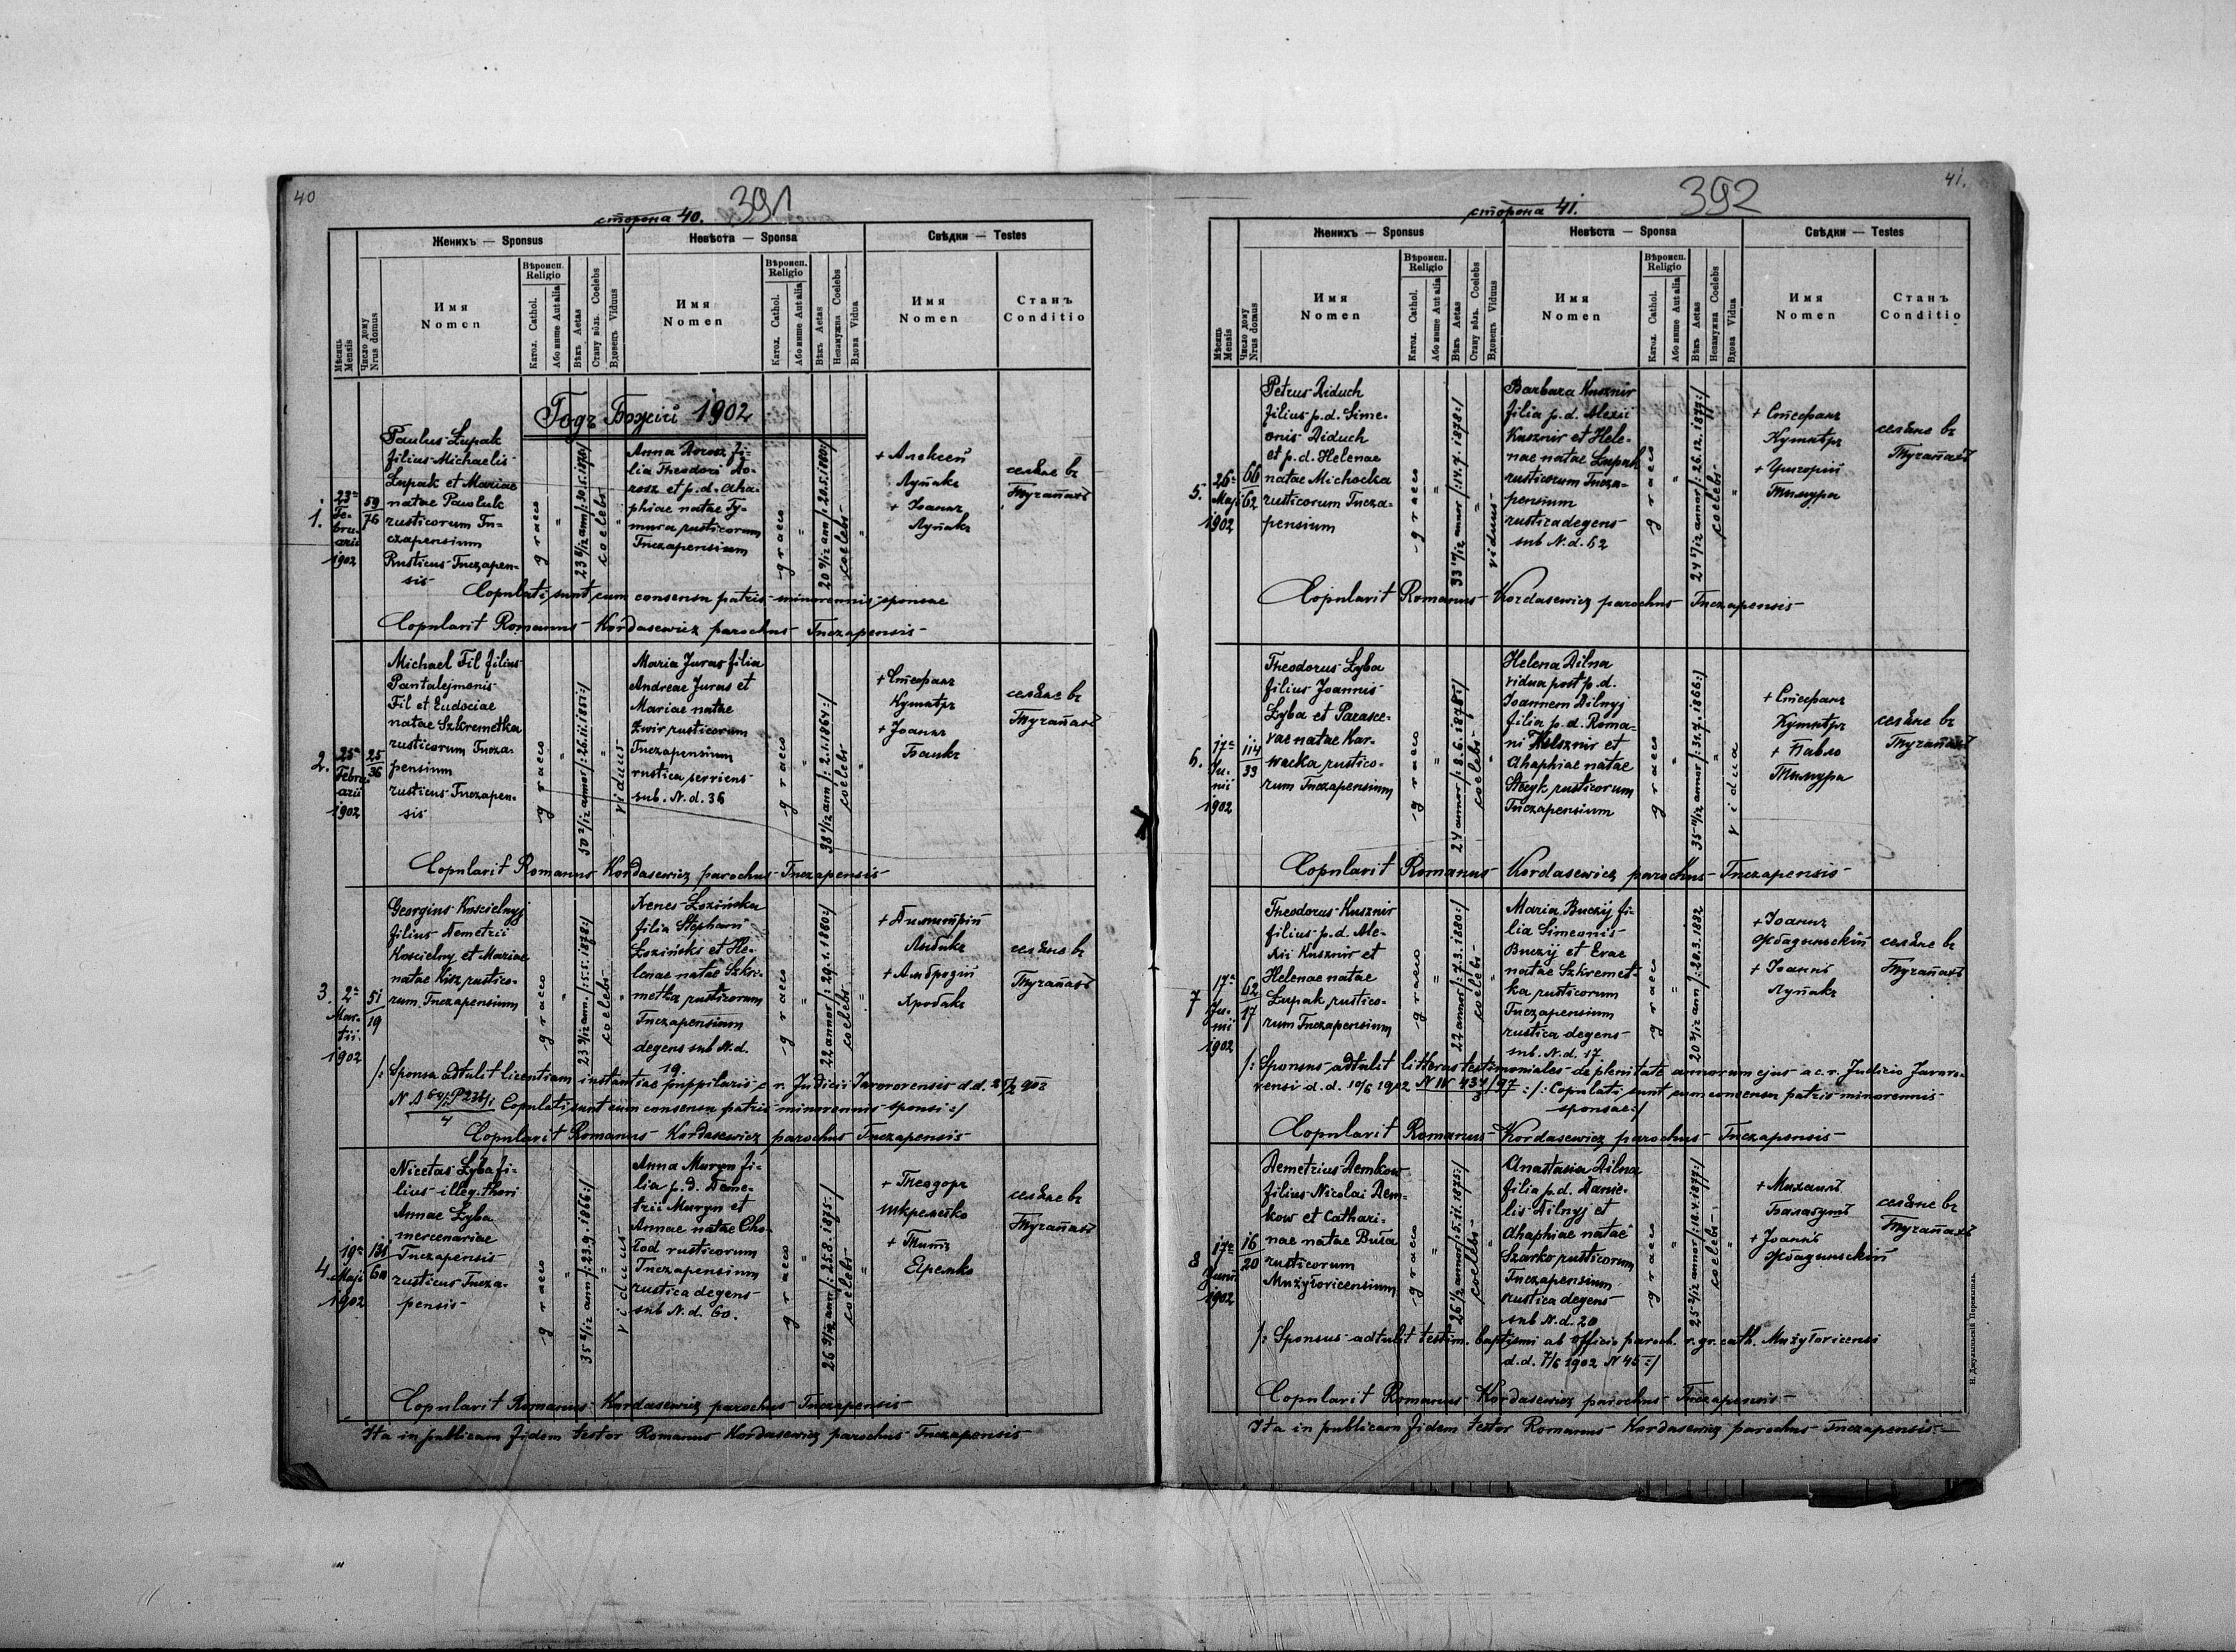 40
391
сторона 40.
Женихъ — Sponsus
Невѣста — Sponsa
Свѣдки — Testes
Мѣсяць Mensis
Число дому Nrus domus
Имя Nomen
Вѣроисп. Religio
Катол. Cathol.
Або инше Aut alia
Вѣкъ Aetas
Стану вôль. Coelebs
Вдовець Viduus
Имя Nomen
Вѣроисп. Religio
Катол. Cathol.
Або инше Aut alia
Вѣкъ Aetas
Незамужна Coelebs
Вдова Vidua
Имя Nomen
Станъ Conditio
Годъ Божій 1902
1.
23a Februarii 1902
59/76
Paulus Łupak
filius Michaelis
Łupak et Mariae
natae Pawluk
rusticorum Tu-
czapensium
Rusticus Tuczapen-
sis
graeco
coelebs
Anna Dorosz fi-
lia Theodori Do-
rosz et p.d. Aha-
phiae natae Ty-
mura rusticorum
Tuczapensium
graeco
coelebs
+ Алексей
Лупакъ
+ Іоаннъ
Лупакъ
селяне въ
Тучапахъ
Copulati sunt cum consensu patris minorennis sponsae
Copulavit Romanus Kordasewicz parochus Tuczapensis
2.
25a Februarii 1902
25/36
Michael Fil filius
Pantalejmonis
Fil et Eudociae
natae Szkremetka
rusticorum Tucza-
pensium
rusticus Tuczapen-
sis
graeco
viduus
Maria Juras filia
Andreae Juras et
Mariae natae
Żwir rusticorum
Tuczapensium
rustica serviens
sub. N. d. 36
graeco
38 1/12 ann /: 2.1.1864:/
coelebs
+ Стефанъ
Кушнѣръ
+ Іоаннъ
селяне въ
Тучапахъ
Copulavit Romanus Kordasewicz parochus Tuczapensis
3.
2a Martii. 1902
51/19
Georgius Koscielnyj
filius Demetrii
Koscielny et Mariae
natae Kisz rustico-
rum Tuczapensium
graeco
coelebs
Xenes Łozińska
filia Stephani
Łozinski et He-
lenae natae Szkre-
metka rusticorum
Tuczapensium
degens sub N. d.
19.
graeco
22 annor /: 29.1.1880:/
coelebs
+ Димитрій
+ Амброзій
Хробакъ
селяне въ
Тучапахъ
/: Sponsa adtulit licentiam instantiae puppilaris c. r. Judicii Javorovensis d.d.
Copulati sunt cum consensu patris minorennis sponsi :/
Copulavit Romanus Kordasewicz parochus Tuczapensis
4.
19a Maji 1902
131/60
Nicetas Zyba fi-
lius illeg. thori
Annae Zyba
mercenariae
Tuczapensis
rusticus Tucza-
pensis
graeco
viduus
Anna Muryn fi-
lia p.d. Deme-
trii Muryn et
Annae natae Cho-
łod rusticorum
Tuczapensium
rustica degens
sub N. d. 60.
graeco
coelebs
+ Теодоръ
+ Титъ
Яремко
селяне въ
Тучапахъ
Copulavit Romanus Kordasewicz parochus Tuczapensis
Ita in publicam fidem testor Romanus Kordasewicz parochus Tuczapensis
41.
392
сторона 41.
Женихъ — Sponsus
Невѣста — Sponsa
Свѣдки — Testes
Мѣсяць Mensis
Число дому Nrus domus
Имя Nomen
Вѣроисп. Religio
Катол. Cathol.
Або инше Aut alia
Вѣкъ Aetas
Стану вôль. Coelebs
Вдовець Viduus
Имя Nomen
Вѣроисп. Religio
Катол. Cathol.
Або инше Aut alia
Вѣкъ Aetas
Незамужна Coelebs
Вдова Vidua
Имя Nomen
Станъ Conditio
5.
26a Maji 1902
66/62
Petrus Diduch
filius p.d. Sime-
onis Diduch
et p.d. Helenae
natae Michocka
rusticorum Tucza-
pensium
graeco
viduus
Barbara Kusznir
filia p.d. Alexii
Kusznir et Hele-
nae natae Łupak
rusticorum Tucza-
pensium
rustica degens
sub N. d. 62
graeco
coelebs
+ Стефанъ
Кушнѣръ
+ Григорій
Тимура
селяне въ
Тучапахъ
Copulavit Romanus Kordasewicz parochus Tuczapensis
6.
17a Junii 1902
114/33
Theodorus Zyba
filius Joannis
Zyba et Parasce-
vae natae Kar-
wacka rustico-
rum Tuczapensium
graeco
24 annor /: 8.6.1878:/
coelebs
Helena Dilna
vidua post p.d.
Ioannem Dilnyj
filia p.d. Roma-
ni Kusznir et
Ahaphiae natae
Stecyk rusticorum
Tuczapensium
graeco
vidua
+ Стефанъ
Кушнѣръ
+ Павло
Тимура
селяне въ
Тучапахъ
Copulavit Romanus Kordasewicz parochus Tuczapensis
7
17a Junii 1902
62/17
Theodorus Kusznir
filius p.d. Ale-
xii Kusznir et
Helenae natae
Łupak rustico-
rum Tuczapensium
graeco
22 annor /: 7.3.1880:/
coelebs
Maria Buczij fi-
lia Simeonis
Buczij et Evae
natae Szkremet-
ka rusticorum
Tuczapensium
rustica degens
sub. N. d. 17
graeco
20 3/12 ann /: 20.3.1882
coelebs
+ Іоаннъ
+ Іоаннъ
Лупакъ
селяне въ
Тучапахъ
/: Sponsus adtulit litteras testimoniales de plenitate annorum ejus a c. r. Judicio Javoro-
vensi d.d. 10/6 1902 N IV 434/97 :/: Copulati sunt cum consensu patris minorennis
sponsae :/
Copulavit Romanus Kordasewicz parochus Tuczapensis
8
17a Junii 1902
16/20
Demetrius Demkow
filius Nicolai Dem-
kow et Cathari-
nae natae Buła
rusticorum
Mużyłoricensium
graeco
coelebs
Anastasia Dilna
filia p.d. Danie-
lis Dilnyj et
Ahaphiae natae
Szarko rusticorum
Tuczapensium
rustica degens
sub N. d. 20
graeco
25 2/12 annor /: 18.4.1877:/
coelebs
+ Михаилъ
+ Іоаннъ
селяне въ
Тучапахъ
/: Sponsus adtulit testim. baptismi ab officio paroch. r. gr. cath. Mużyłoricensi
d.d. 7/6 1902 N 45 :/
Copulavit Romanus Kordasewicz parochus Tuczapensis
Ita in publicam fidem testor Romanus Kordasewicz parochus Tuczapensis